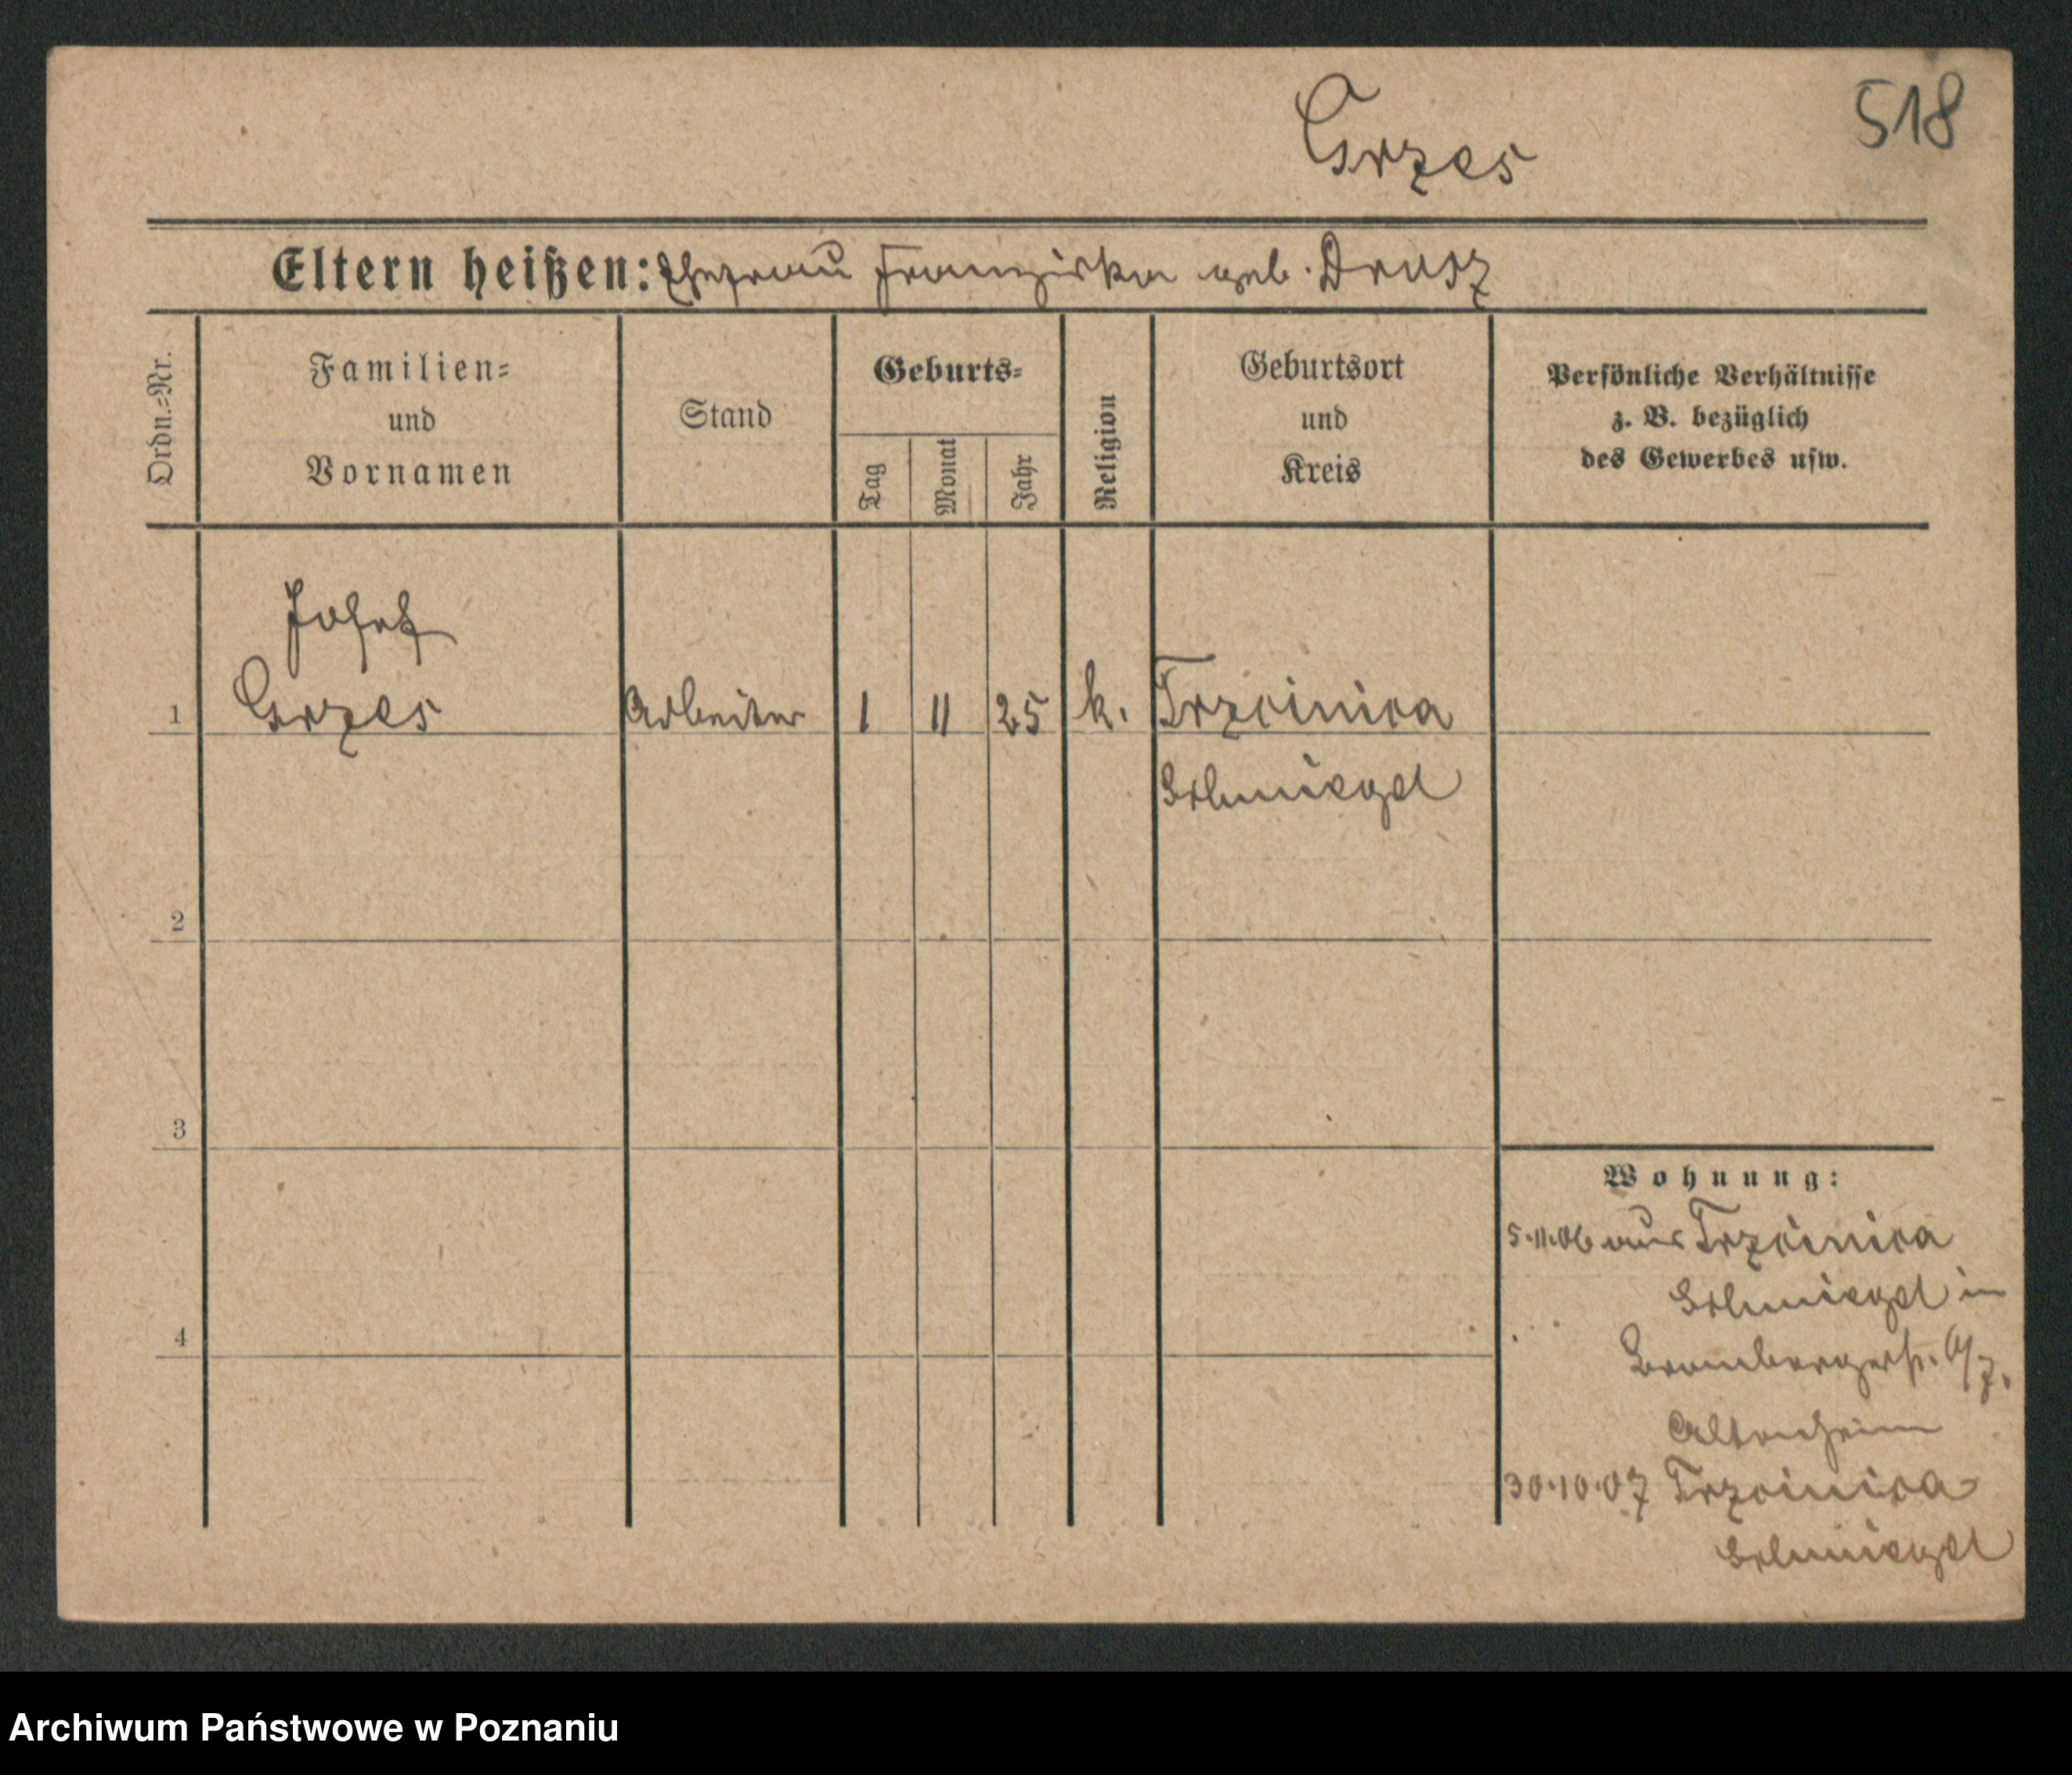 Grzes
518
Eltern heißen: Ehefrau Franziska geb. Drusz
Ordn.=Nr.
Familien=
und
Vornamen
Stand
Geburts=
Tag
Monat
Jahr
Religion
Geburtsort
und
Kreis
Persönliche Verhältnisse
z. B. bezüglich
des Gewerbes usw.
Josef
1 Grzes Arbeiter 1 11 25 k. Trzcinica
Schmiegel
2
3
4
Wohnung:
5.11.06 aus Trzcinica
Schmiegel in
Brombergerstr.
Altenheim
30.10.07 Trzcinica
Schmiegel
Archiwum Państwowe w Poznaniu